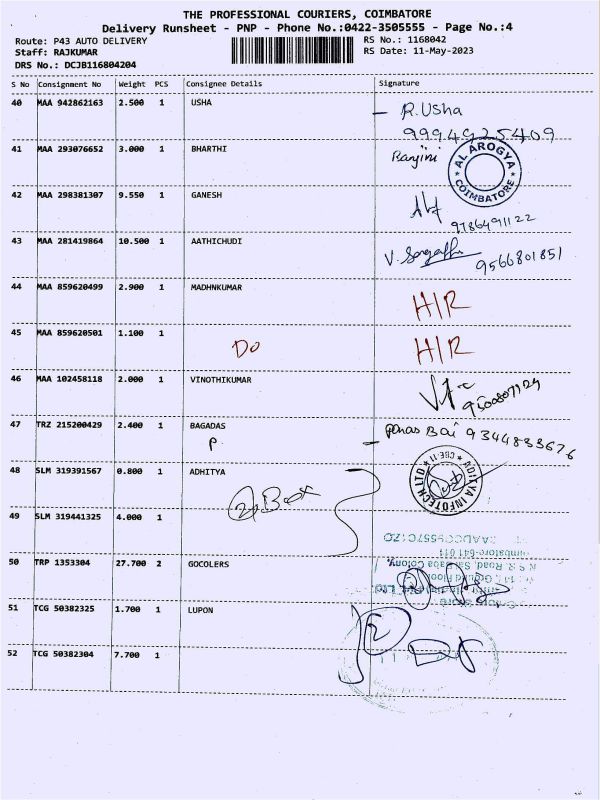 THE PROFESSIONAL COURIERS, COIMBATORE
Delivery Runsheet - PNP - Phone No.:0422-3505555 - Page No.:4
Route: P43 AUTO DELIVERY RS No.: 1168042
Staff: RAJKUMAR RS Date: 11-May-2023
DRS No.: DCJB116804204
S No Consignment No Weight PCS Consignee Details Signature
40 MAA 942862163 2.500 1 USHA
- R.Usha
9994925409
41 MAA 293076652 3.000 1 BHARTHI Ranjini
AL AROGYA
COIMBATORE
42 MAA 298381307 9.550 1 GANESH
9786491122
43 MAA 281419864 10.500 1 AATHICHUDI
V. 9566801851
44 MAA 859620499 2.900 1 MADHNKUMAR
H/R
45 MAA 859620501 1.100 1
Do H/R
46 MAA 102458118 2.000 1 VINOTHIKUMAR
47 TRZ 215200429 2.400 1 BAGADAS
P - Bai 9344833676
48 SLM 319391567 0.800 1 ADHITYA
ADITYA INFOTECH LTD
CBE-11
2 Box
49 SLM 319441325 4.000 1
50 TRP 1353304 27.700 2 GOCOLERS
N.S.R. Road, Sai Baba Colony,
51 TCG 50382325 1.700 1 LUPON
2
52 TCG 50382304 7.700 1